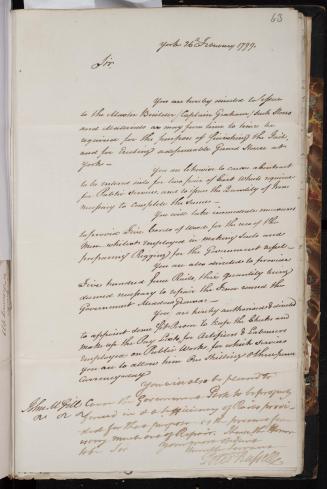 63
York 26th February 1799.
Sir
You are hereby directed to Issue
to the Master Builder, Captain Graham, such Stores
and Materials as may from time to time be
required for the purpose of finishing the Jail,
and for Erecting a dependable Guard House at
York—
You are likewise to cause about
to be ordered into for two pair of Cart Wheels required
for Public Service, and to Issue the Quantity of Iron
necessary to complete the Same—
You will take immediate measures
to provide Five Cords of Wood for the use of the
Men whilst employed in making Sails and
preparing Rigging for the Government Vessel—
You are also directed to provide
Five hundred Fence Rails, this quantity being
deemed necessary to repair the Fence round the
Government Meadow
You are hereby authorized & directed
to appoint some fit Person to keep the Checks and
make up the Pay Lists for Artificers & Labourers
employed on Public Works, for which Service
you are to allow him One Shilling & three pence
Currency
You will also be pleased to
John McGill Cause the Government Park to be properly
fenced in & a sufficiency of Rails provi-
ded for that purpose as the present fen-
very much out of Repair. I have the Honor
to be Sir your most obedient
Humble Servant
Peter Russell